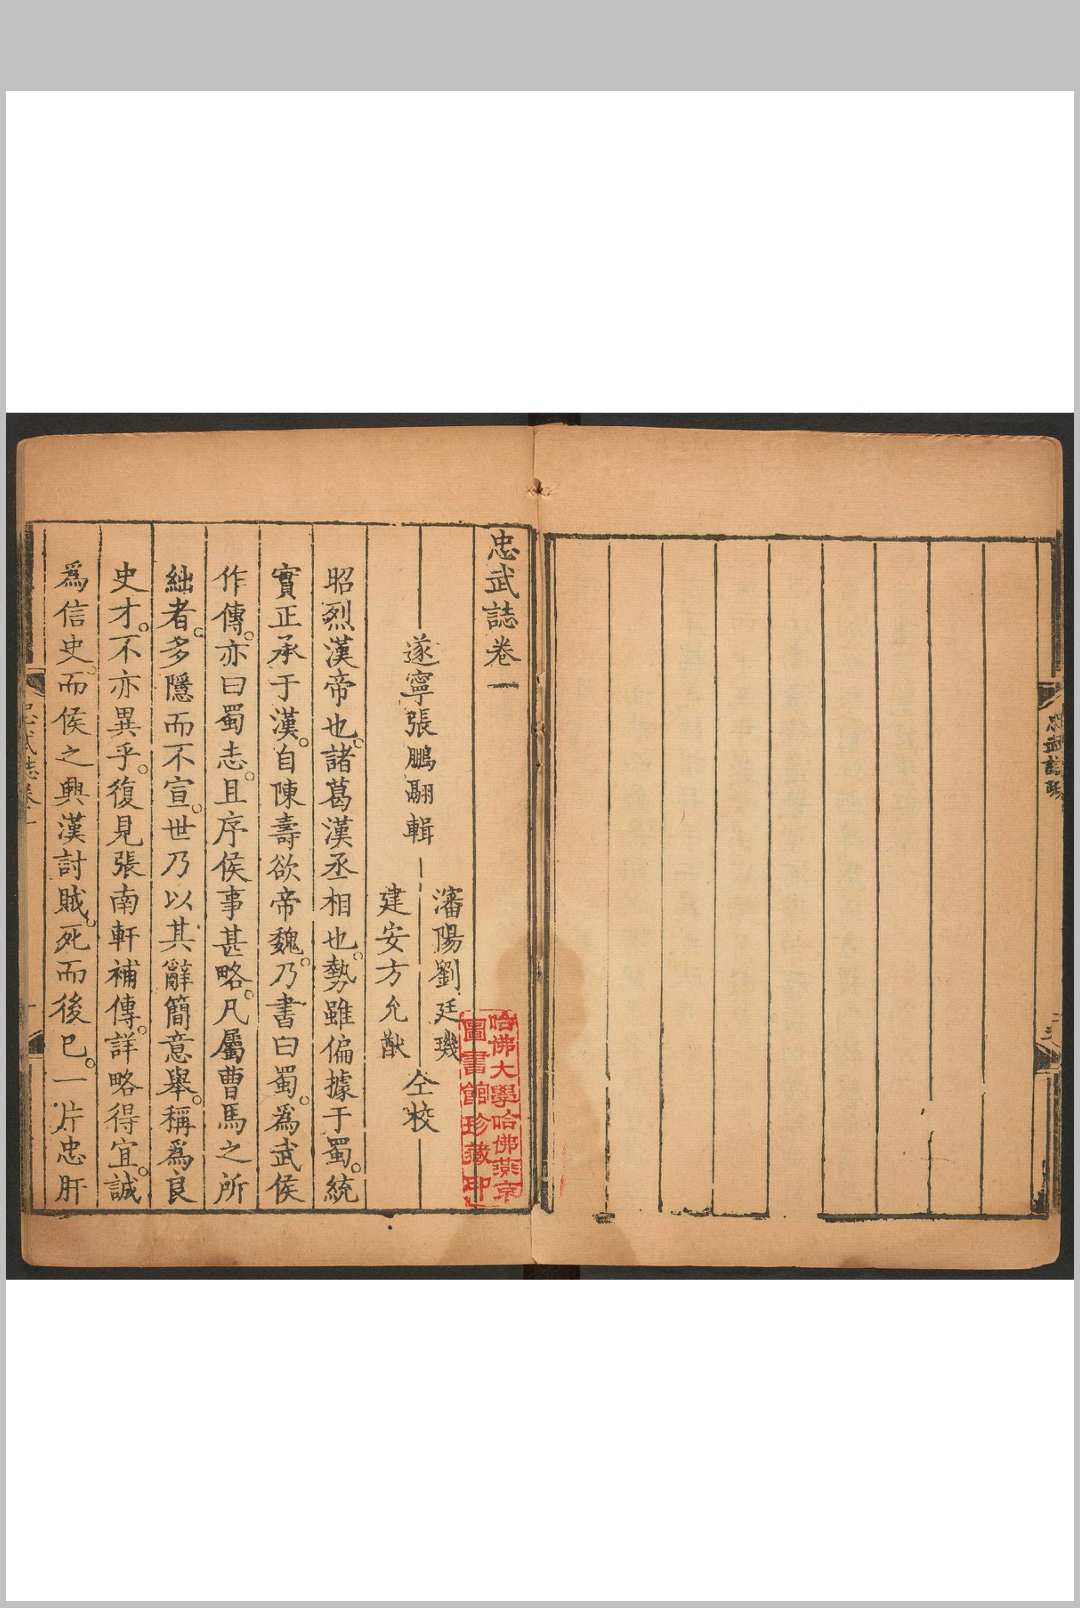 忠武誌卷一
遂寧張鵬翮輯
瀋陽劉廷璣
建安方允猷
仝校
昭烈漢帝也。諸葛漢丞相也。勢雖偏據于蜀。統
實正承于漢。自陳壽欲帝魏。乃書曰蜀。爲武侯
作傳。亦曰蜀志。且序侯事甚略。凡屬曹馬之所
絀者。多隱而不宣。世乃以其辭簡意舉。稱爲良
史才。不亦異乎。復見張南軒補傳。詳略得宜。誠
爲信史。而侯之興漢討賊。死而後已。一片忠肝
忠武誌卷一
哈佛大學哈佛燕京
圖書館珍藏印
忠武誌